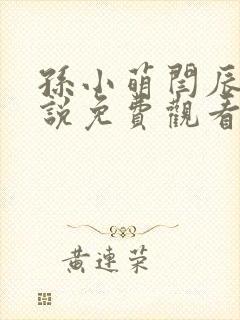 孫小萌閆辰
說免費觀看
黃連榮